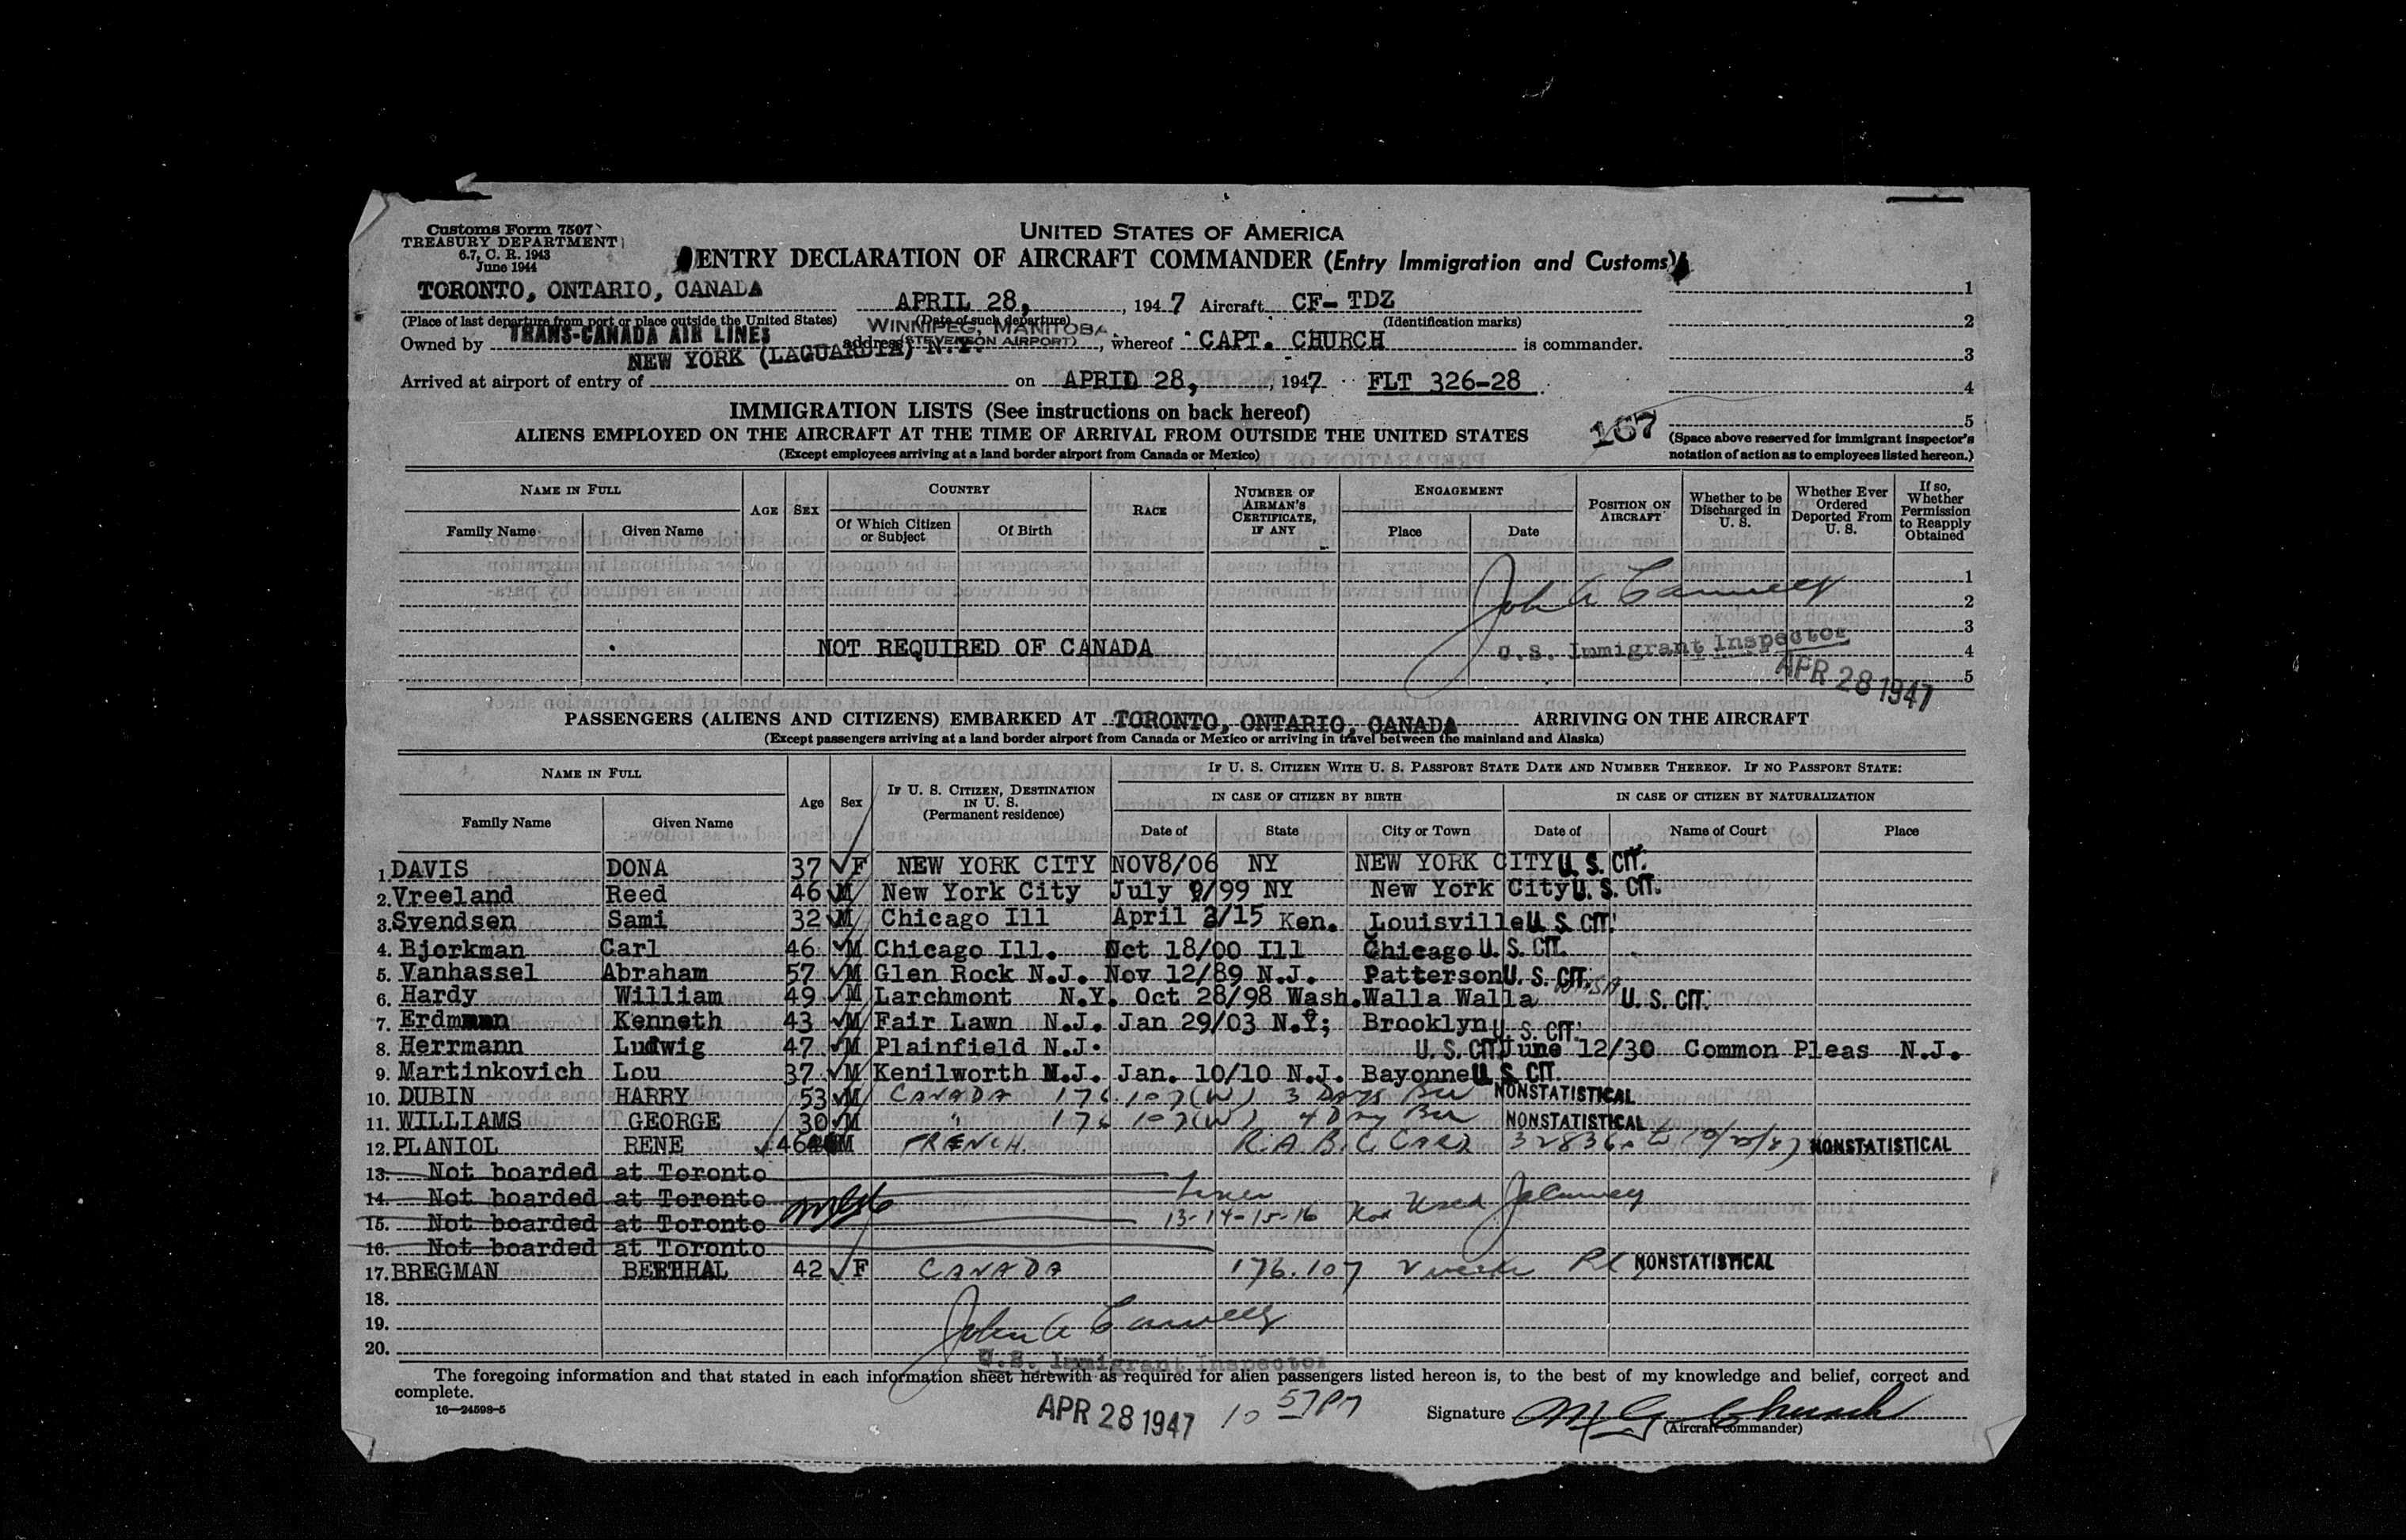 Customs Form 7507
TREASURY DEPARTMENT
6.7, C. R. 1943
June 1944
UNITED STATES OF AMERICA
ENTRY DECLARATION OF AIRCRAFT COMMANDER (Entry Immigration and Customs)
TORONTO, ONTARIO, CANADA APRIL 28, , 1947 Aircraft CF-TDZ
(Place of last departure from port or place outside the United States) (Date of such departure) (Identification marks)
WINNIPEG, MANITOBA
Owned by TRANS-CANADA AIR LINES address (STEVENSON AIRPORT) , whereof CAPT. CHURCH is commander.
NEW YORK (LAGUARDIA) N.Y.
Arrived at airport of entry of on APRIL 28, , 1947 FLT 326-28
1
2
3
4
5
(Space above reserved for immigrant inspector's notation of action as to employees listed hereon.)
IMMIGRATION LISTS (See instructions on back hereof)
167
ALIENS EMPLOYED ON THE AIRCRAFT AT THE TIME OF ARRIVAL FROM OUTSIDE THE UNITED STATES
(Except employees arriving at a land border airport from Canada or Mexico)
NAME IN FULL AGE SEX COUNTRY RACE NUMBER OF AIRMAN'S CERTIFICATE, IF ANY ENGAGEMENT POSITION ON AIRCRAFT Whether to be Discharged in U. S. Whether Ever Ordered Deported From U. S. If so, Whether Permission to Reapply Obtained
Family Name Given Name Of Which Citizen or Subject Of Birth Place Date
1
2
3
NOT REQUIRED OF CANADA 4
5
U.S. Immigrant Inspector
APR 28 1947
PASSENGERS (ALIENS AND CITIZENS) EMBARKED AT TORONTO, ONTARIO, CANADA ARRIVING ON THE AIRCRAFT
(Except passengers arriving at a land border airport from Canada or Mexico or arriving in travel between the mainland and Alaska)
NAME IN FULL Age Sex IF U. S. CITIZEN, DESTINATION IN U. S. (Permanent residence) IF U. S. CITIZEN WITH U. S. PASSPORT STATE DATE AND NUMBER THEREOF. IF NO PASSPORT STATE:
IN CASE OF CITIZEN BY BIRTH IN CASE OF CITIZEN BY NATURALIZATION
Family Name Given Name Date of State City or Town Date of Name of Court Place
1. DAVIS DONA 37 F NEW YORK CITY NOV8/06 NY NEW YORK CITY U. S. CIT.
2. Vreeland Reed 46 M New York City July 9/99 NY New York City U. S. CIT.
3. Svendsen Sami 32 M Chicago Ill April 2/15 Ken. Louisville U. S. CIT.
4. Bjorkman Carl 46 M Chicago Ill. Oct 18/00 Ill Chicago U. S. CIT.
5. Vanhassel Abraham 57 M Glen Rock N.J. Nov 12/89 N.J. Patterson U. S. CIT.
6. Hardy William 49 M Larchmont N.Y. Oct 28/98 Wash. Walla Walla WASH U. S. CIT.
7. Erdmann Kenneth 43 M Fair Lawn N.J. Jan 29/03 N.Y; Brooklyn U. S. CIT.
8. Herrmann Ludwig 47 M Plainfield N.J. U. S. CIT June 12/30 Common Pleas N.J.
9. Martinkovich Lou 37 M Kenilworth N.J. Jan. 10/10 N.J. Bayonne U. S. CIT.
10. DUBIN HARRY 53 M CANADA 176.107(W) 3 Days Bu NONSTATISTICAL
11. WILLIAMS GEORGE 30 M " 176 107(W) 4 Day Bu NONSTATISTICAL
12. PLANIOL RENE 46 M FRENCH. R.A.B.C CARD NONSTATISTICAL
13. Not boarded at Toronto
14. Not boarded at Toronto Lines
15. Not boarded at Toronto 13-14-15-16 Not Used
16. Not boarded at Toronto
17. BREGMAN BERTHAL 42 F CANADA 176.107 NONSTATISTICAL
18.
19.
20.
John A
U.S. Immigrant Inspector
The foregoing information and that stated in each information sheet herewith as required for alien passengers listed hereon is, to the best of my knowledge and belief, correct and
complete.
16—24598-5
APR 28 1947 10 57 PM
Signature M G Church
(Aircraft commander)